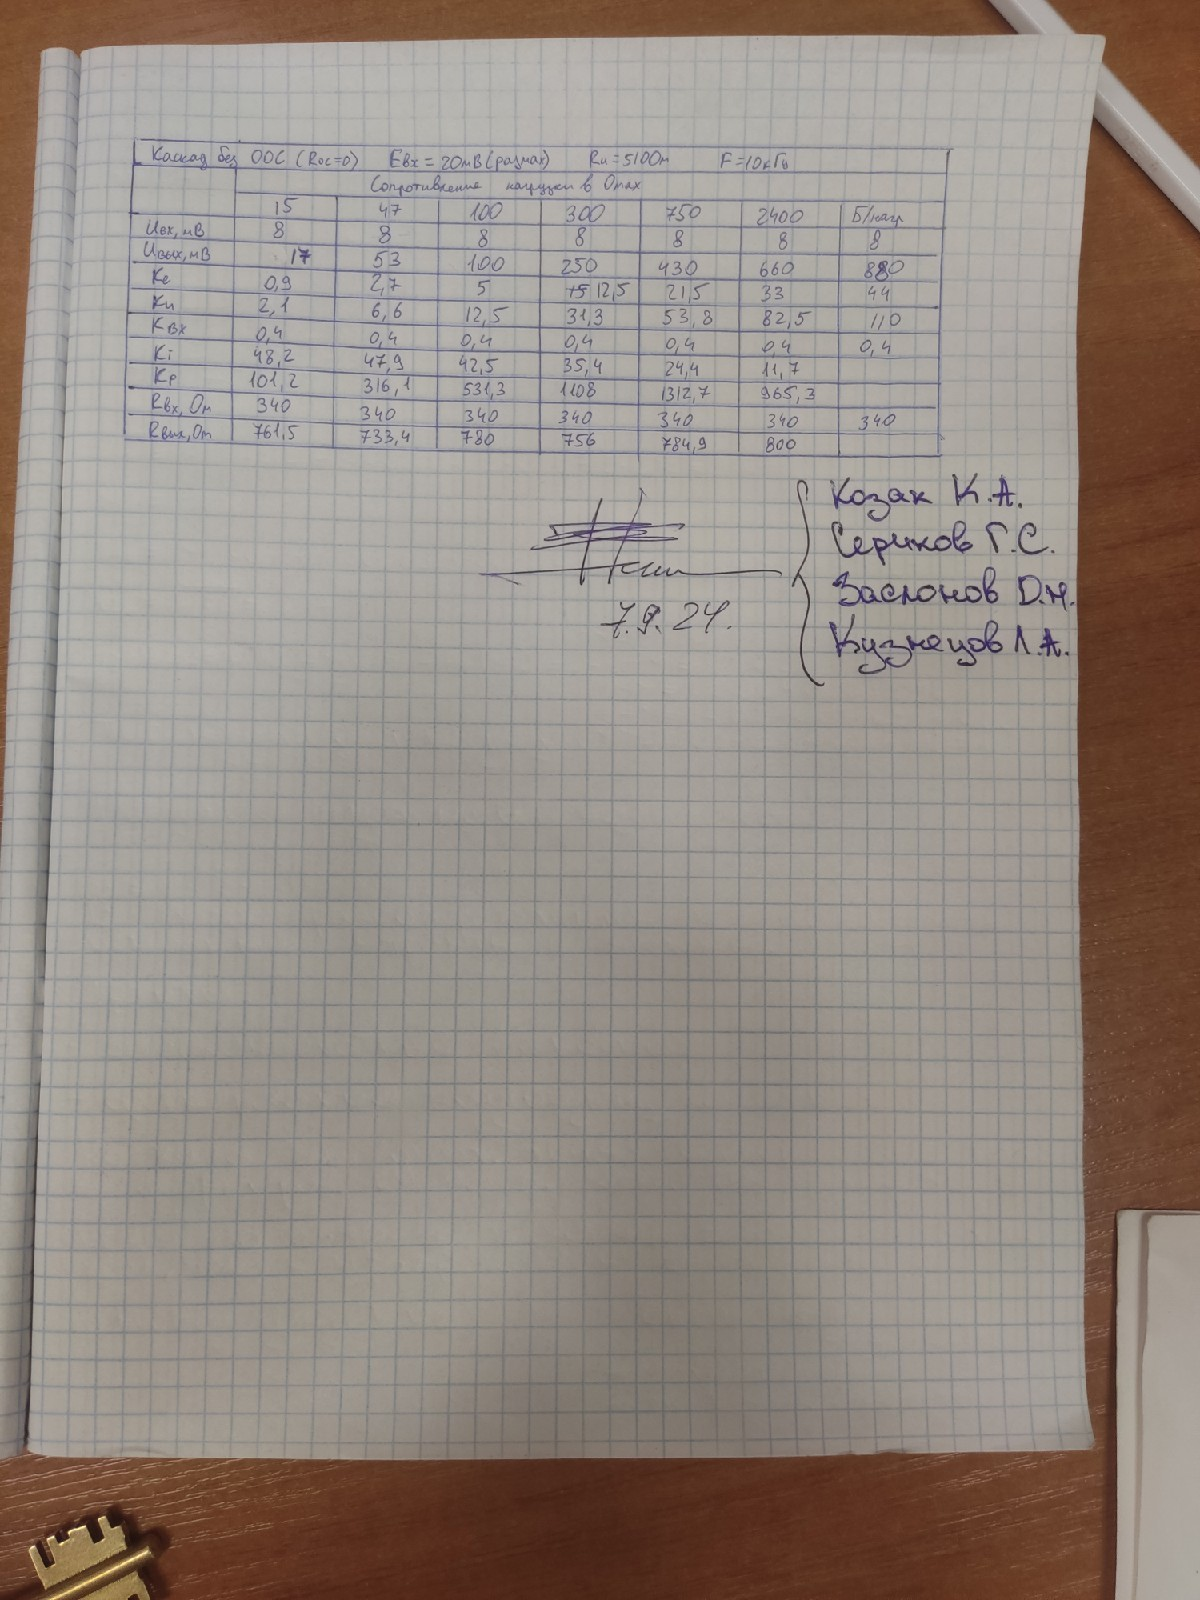 Каскад без ООС (Roc=0) Eвх = 20мВ (размах) Rи = 510Ом F=10кГц
Сопротивление нагрузки в Омах
15 47 100 300 750 2400 Б/наг
Uвх, мВ 8 8 8 8 8 8 8
Uвых, мВ 17 53 100 250 430 660 880
Ке 0,9 2,7 5 12,5 21,5 33 44
Ku 2,1 6,6 12,5 31,3 53,8 82,5 110
Kвх 0,4 0,4 0,4 0,4 0,4 0,4 0,4
Ki 48,2 47,9 42,5 35,4 24,4 11,7
Kp 101,2 316,1 531,3 1108 1312,7 965,3
Rвх, Ом 340 340 340 340 340 340 340
Rвых, Ом 761,5 733,4 780 756 784,9 800
Козак К.А.
Сериков Г.С.
Заслонов Д.Н.
Кузнецов Л.А.
7.9.24.